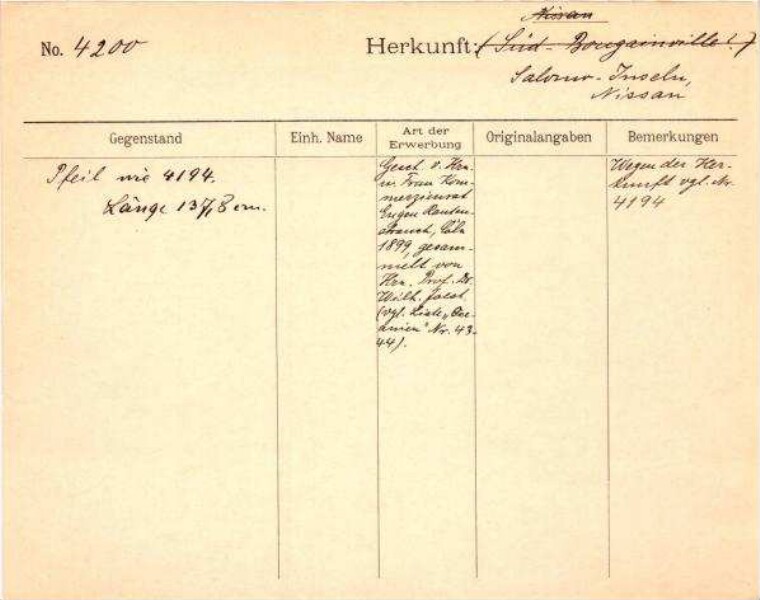 Nissan
No. 4200
Herkunft: (Süd-Bougainville!)
Salomo-Inseln,
Nissan
Gegenstand
Einh. Name
Art der
Erwerbung
Originalangaben
Bemerkungen
Pfeil wie 4194.
Länge 137,8 cm.
Gesch. v. Hrn.
u. Frau Kom-
merzienrat
Eugen Rauten-
strauch, Cöln
1899, gesam-
melt von
Hrn. Prof. Dr.
Wilh. Joest
(vgl. Liste „Oce-
anien" Nr. 43-
44).
Wegen der Her-
kunft vgl. Nr.
4194